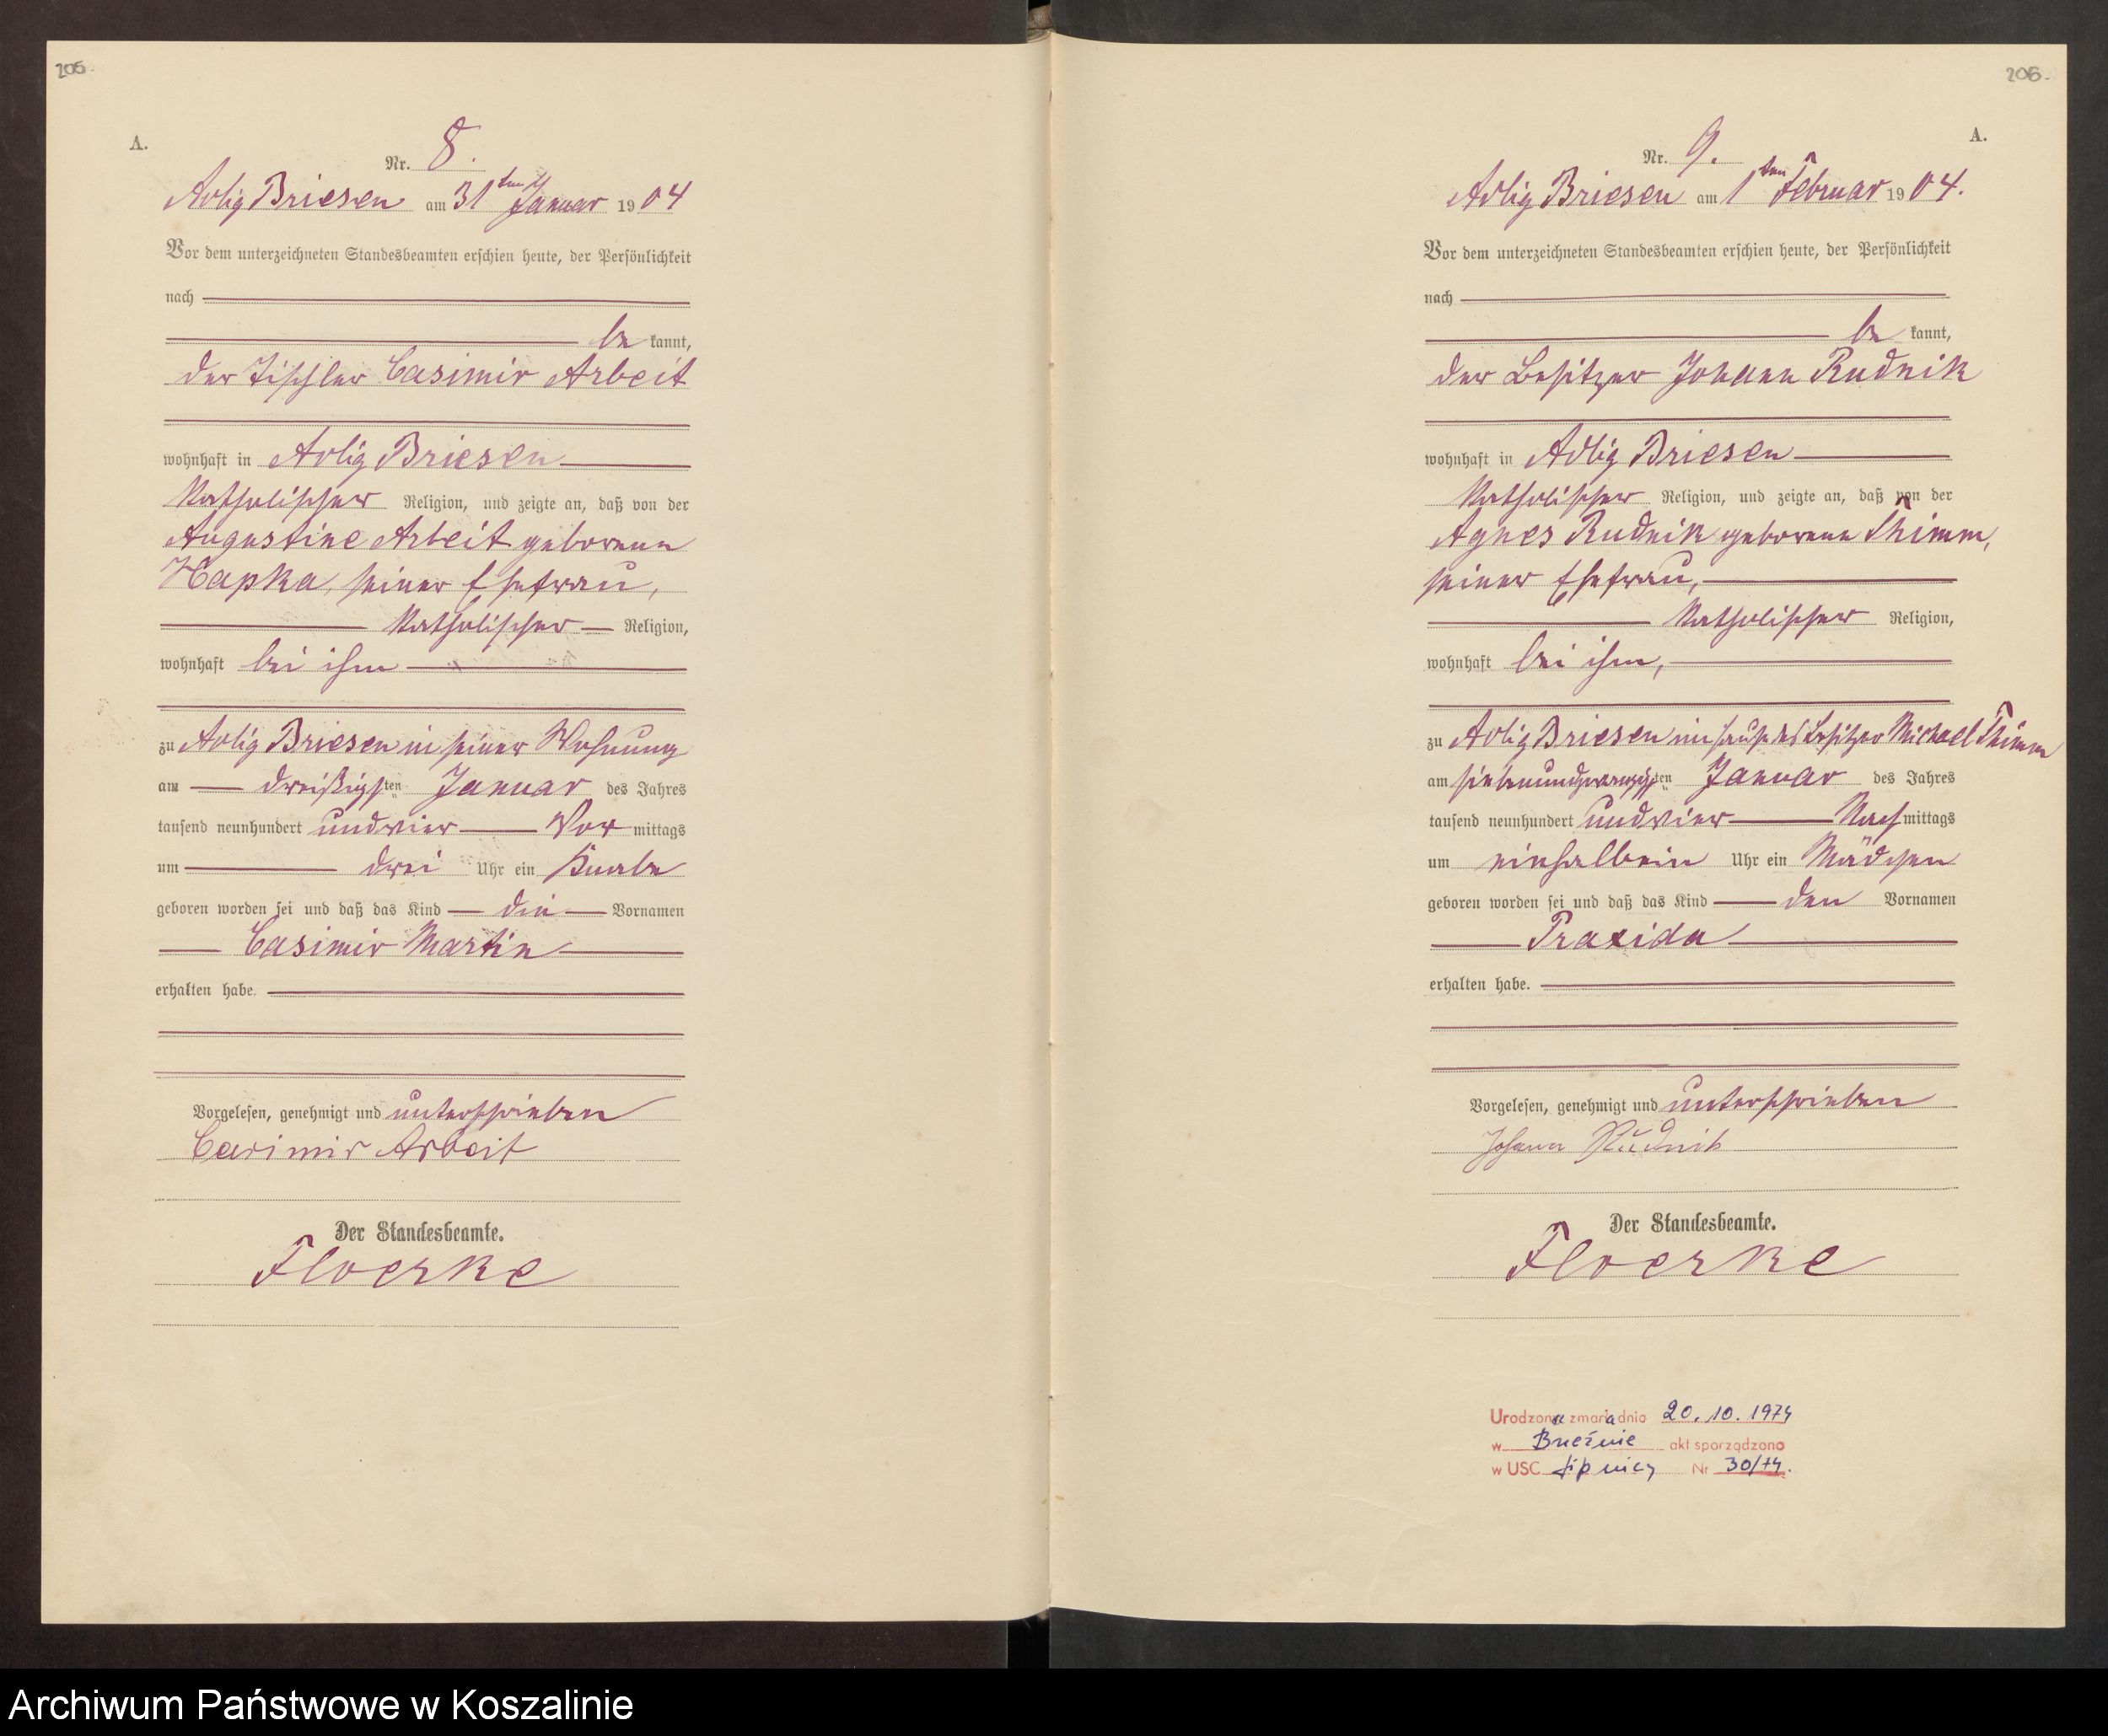 205.
A.
Nr. 8.
Adlig Briesen am 31ten Januar 1904
Vor dem unterzeichneten Standesbeamten erschien heute, der Persönlichkeit
nach
be kannt,
der Tischler Casimir Arbeit
wohnhaft in Adlig Briesen
katholischer Religion, und zeigte an, daß von der
Augustine Arbeit geborenen
Hapka, seiner Ehefrau,
katholischer Religion,
wohnhaft bei ihm
zu Adlig Briesen in seiner Wohnung
am dreißigsten Januar des Jahres
tausend neunhundert und vier Vor mittags
um drei Uhr ein Knabe
geboren worden sei und daß das Kind die Vornamen
Casimir Martin
erhalten habe.
Vorgelesen, genehmigt und unterschrieben
Casimir Arbeit
Der Standesbeamte.
Floerke
206.
A.
Nr. 9.
Adlig Briesen am 1ten Februar 1904.
Vor dem unterzeichneten Standesbeamten erschien heute, der Persönlichkeit
nach
be kannt,
der Besitzer Johann Rudnik
wohnhaft in Adlig Briesen
katholischer Religion, und zeigte an, daß von der
Agnes Rudnik geborenen Thimm,
seiner Ehefrau,
katholischer Religion,
wohnhaft bei ihm,
zu Adlig Briesen im Hause des Besitzer Michael Thimm
am siebenundzwanzigsten Januar des Jahres
tausend neunhundert und vier Nach mittags
um einhalbein Uhr ein Mädchen
geboren worden sei und daß das Kind den Vornamen
Praxida
erhalten habe.
Vorgelesen, genehmigt und unterschrieben
Johann Rudnik
Der Standesbeamte.
Floerke
Urodzona zmarła dnia 20.10.1974
w Brzeźnie akt sporządzono
w USC Lipnicy Nr 30/74.
Archiwum Państwowe w Koszalinie